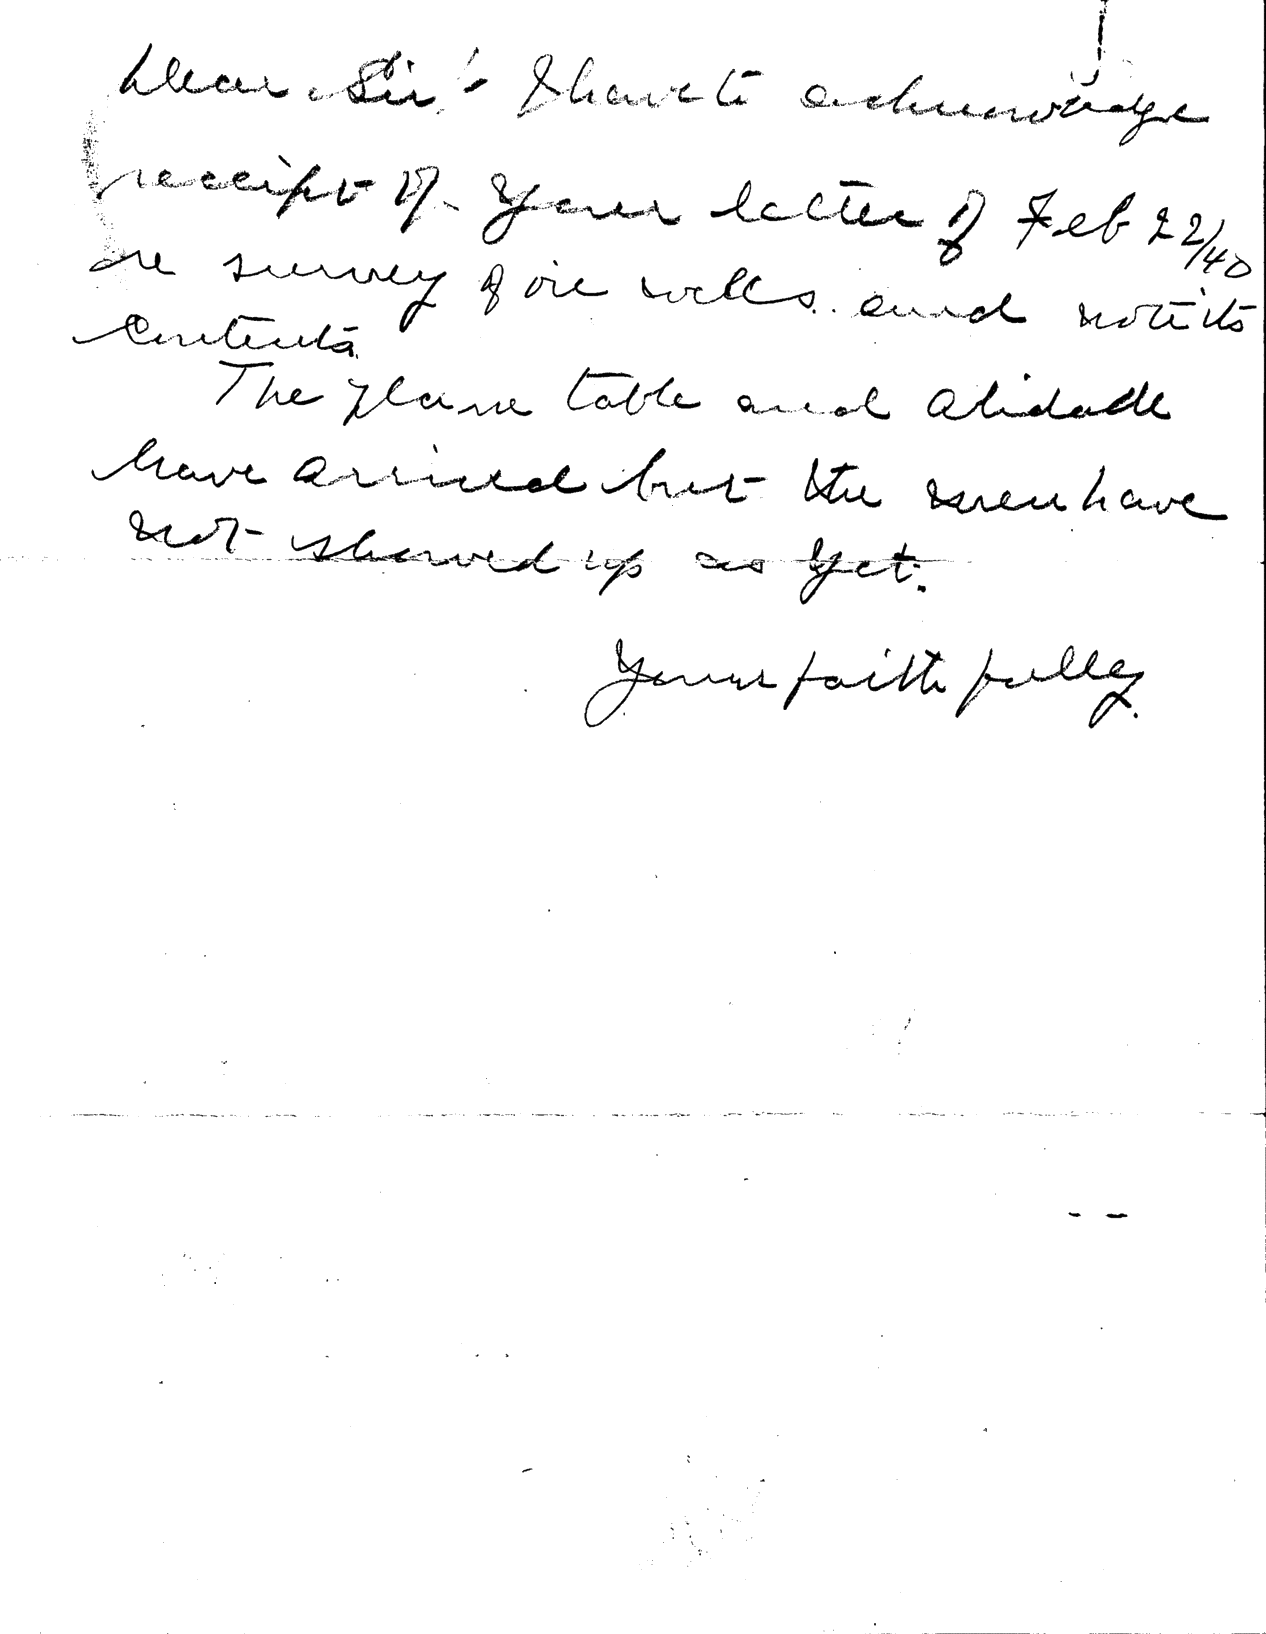 Dear Sir:- I have to acknowledge
receipt of your letter of Feb 22/40
re survey of oil wells and note its
contents.
The plane table and alidade
have arrived but the men have
not showed up as yet.
Yours faithfully.